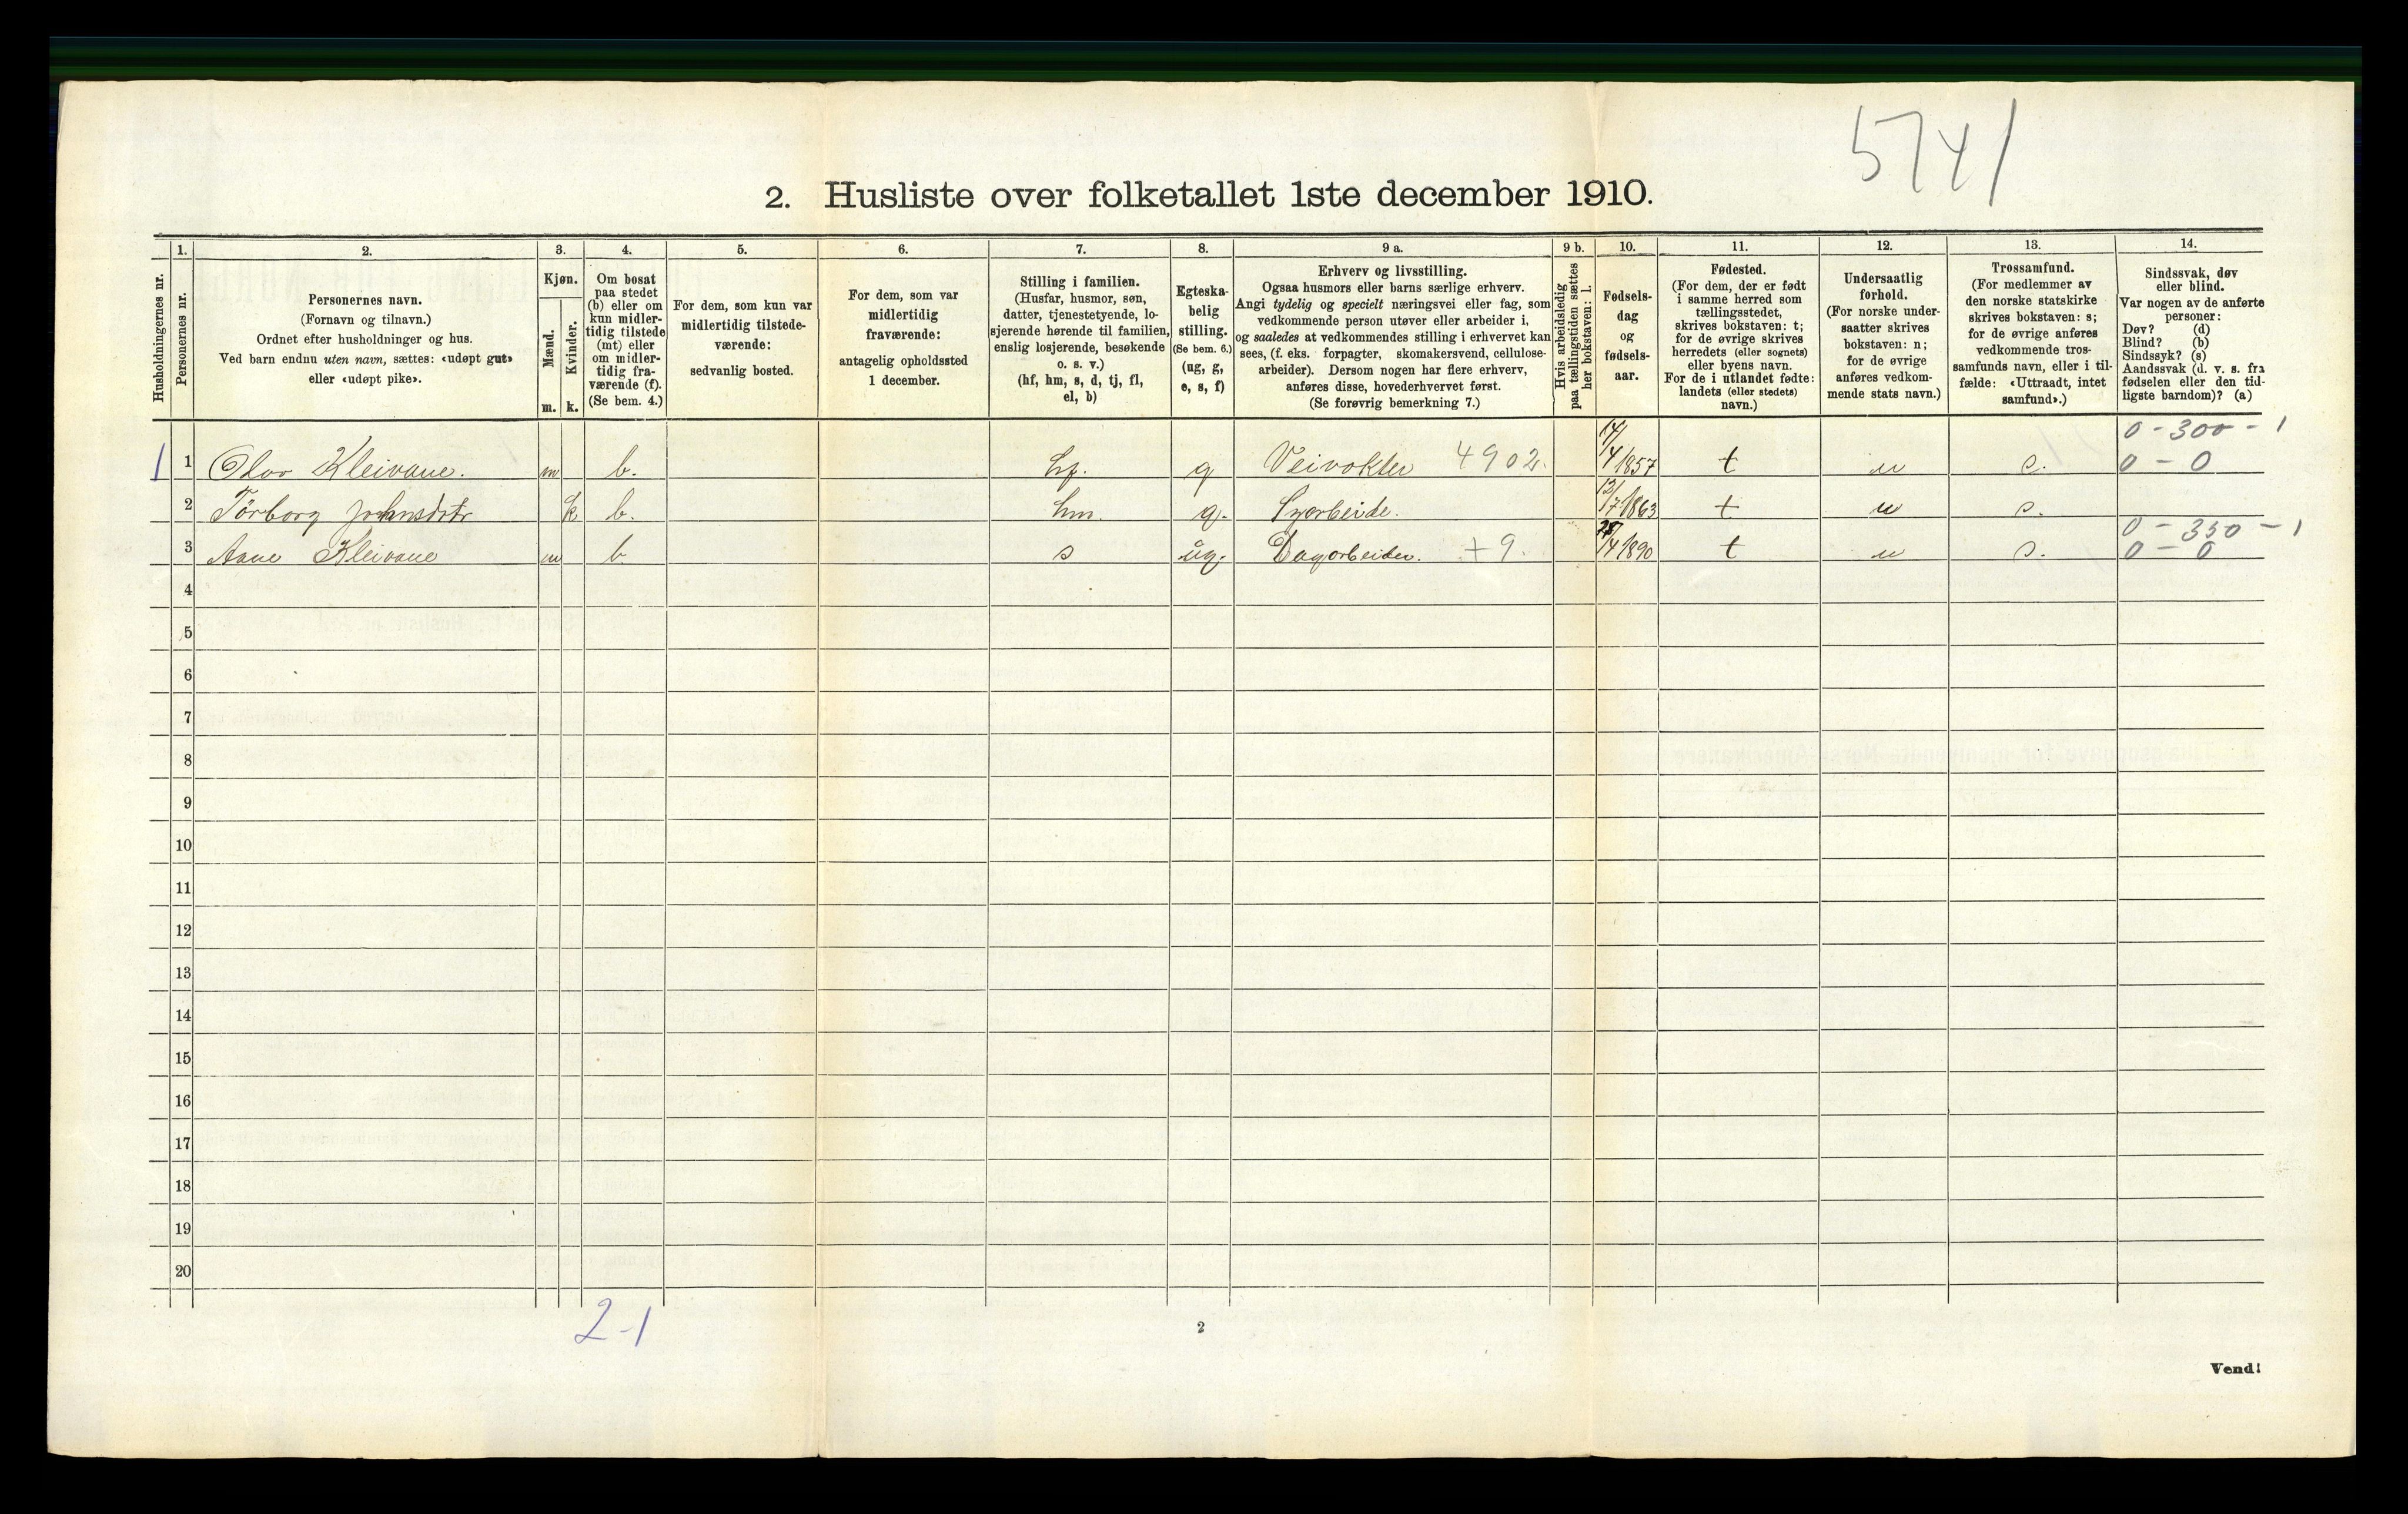 5741
2. Husliste over folketallet 1ste december 1910.
Husholdningernes nr.
1.
Personernes nr.
2.
Personernes navn.
(Fornavn og tilnavn.)
Ordnet efter husholdninger og hus.
Ved barn endnu uten navn, sættes: «udøpt gut»
eller «udøpt pike».
3.
Kjøn.
Mænd.
Kvinder.
m. k.
4.
Om bosat
paa stedet
(b) eller om
kun midler-
tidig tilstede
(mt) eller
om midler-
tidig fra-
værende (f).
(Se bem. 4.)
5.
For dem, som kun var
midlertidig tilstede-
værende:
sedvanlig bosted.
6.
For dem, som var
midlertidig
fraværende:
antagelig opholdssted
1 december.
7.
Stilling i familien.
(Husfar, husmor, søn,
datter, tjenestetyende, lo-
sjerende hørende til familien,
enslig losjerende, besøkende
o. s. v.)
(hf, hm, s, d, tj, fl,
el, b)
8.
Egteska-
belig
stilling.
(Se bem. 6.)
(ug, g,
e, s, f)
9 a.
Erhverv og livsstilling.
Ogsaa husmors eller barns særlige erhverv.
Angi tydelig og specielt næringsvei eller fag, som
vedkommende person utøver eller arbeider i,
og saaledes at vedkommendes stilling i erhvervet kan
sees, (f. eks. forpagter, skomakersvend, cellulose-
arbeider). Dersom nogen har flere erhverv,
anføres disse, hovederhvervet først.
(Se forøvrig bemerkning 7.)
9 b.
Hvis arbeidsledig
paa tællingstiden sættes
her bokstaven: l.
10.
Fødsels-
dag
og
fødsels-
aar.
11.
Fødested.
(For dem, der er født
i samme herred som
tællingsstedet,
skrives bokstaven: t;
for de øvrige skrives
herredets (eller sognets)
eller byens navn.
For de i utlandet fødte:
landets (eller stedets)
navn.)
12.
Undersaatlig
forhold.
(For norske under-
saatter skrives
bokstaven: n;
for de øvrige
anføres vedkom-
mende stats navn.)
13.
Trossamfund.
(For medlemmer av
den norske statskirke
skrives bokstaven: s;
for de øvrige anføres
vedkommende tros-
samfunds navn, eller i til-
fælde: «Uttraadt, intet
samfund».)
14.
Sindssvak, døv
eller blind.
Var nogen av de anførte
personer:
Døv? (d)
Blind? (b)
Sindssyk? (s)
Aandssvak (d. v. s. fra
fødselen eller den tid-
ligste barndom)? (a)
0 - 300 - 1
1 1 Olav Kleivane. m b. hf. g Veivokter 4902. 14/4 1857 t n s. 0 - 0
2 Torborg Johnsdtr k b. hm. g. Syarbeide. 12/7 1863 t n s.
0 - 350 - 1
3 Aane Kleivane m b s ug. Dagarbeider. +9. /4 1890 t n s. 0 - 0
4
5
6
7
8
9
10
11
12
13
14
15
16
17
18
19
20
2-1
2
Vend!